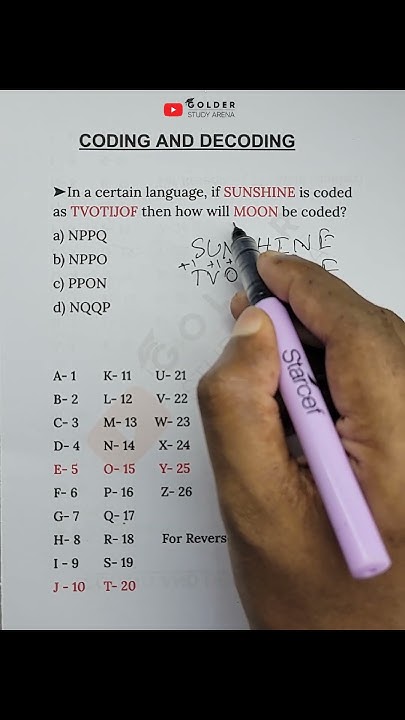 GOLDER
STUDY ARENA
CODING AND DECODING
➤In a certain language, if SUNSHINE is coded
as TVOTIJOF then how will MOON be coded?
a) NPPQ
b) NPPO
c) PPON
d) NQQP
SUN HINE
+1 +1 +
TVO F
A- 1 K- 11 U- 21
B- 2 L- 12 V- 22
C- 3 M- 13 W- 23
D- 4 N- 14 X- 24
E- 5 O- 15 Y- 25
F- 6 P- 16 Z- 26
G- 7 Q- 17
H- 8 R- 18 For Revers
I - 9 S- 19
J - 10 T- 20
Starcef